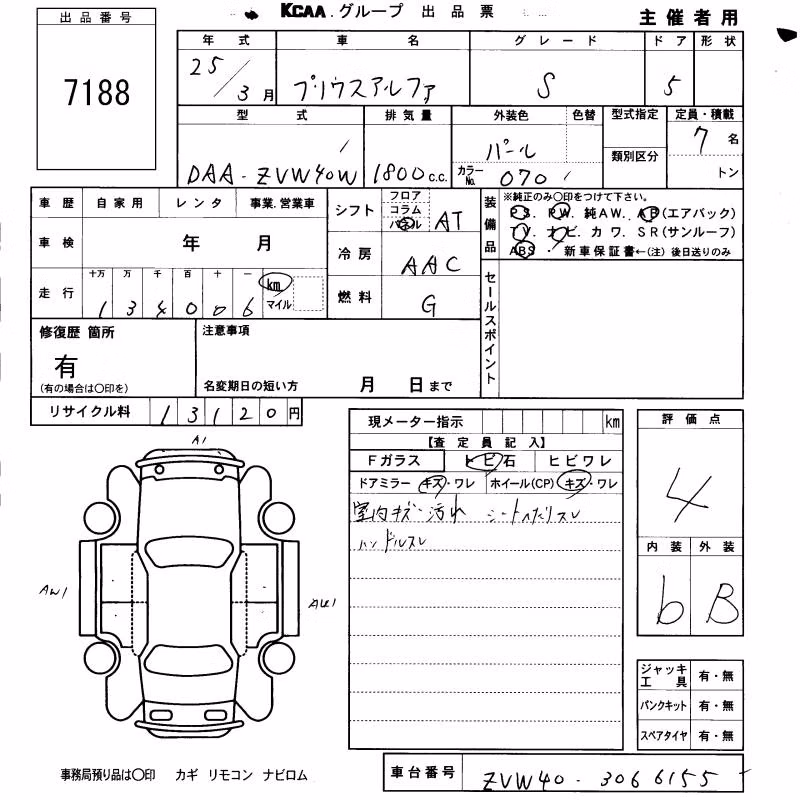 出品番号
7188
KCAA.グループ 出品票
主催者用
年式 車名 グレード ドア 形状
25/3月 プリウスアルファ S 5
型式 排気量 外装色 色替 型式指定 定員・積載
DAA-ZVW40W 1800c.c. パール 7名
カラーNo. 070 類別区分 トン
車歴 自家用 レンタ 事業.営業車
車検 年 月
走行 十万 万 千 百 十 一
134006 km マイル
シフト フロア コラム パネル AT
冷房 AAC
燃料 G
装備品
※純正のみ○印をつけて下さい。
PS. PW. 純AW. AB(エアバック)
TV. ナビ. カワ. SR(サンルーフ)
ABS. 新車保証書←(注) 後日送りのみ
セールスポイント
修復歴 箇所
有
(有の場合は○印を)
注意事項
名変期日の短い方 月 日まで
リサイクル料 13120円
現メーター指示 km
【査定員記入】
Fガラス トビ石 ヒビワレ
ドアミラー キズ・ワレ ホイール(CP) キズ・ワレ
室内キズ・汚れ
ハンドルスレ
評価点
4
内装 外装
b B
A1
AW1
AW1
ジャッキ工具 有・無
パンクキット 有・無
スペアタイヤ 有・無
事務局預り品は○印 カギ リモコン ナビロム
車台番号 ZVW40-3066155